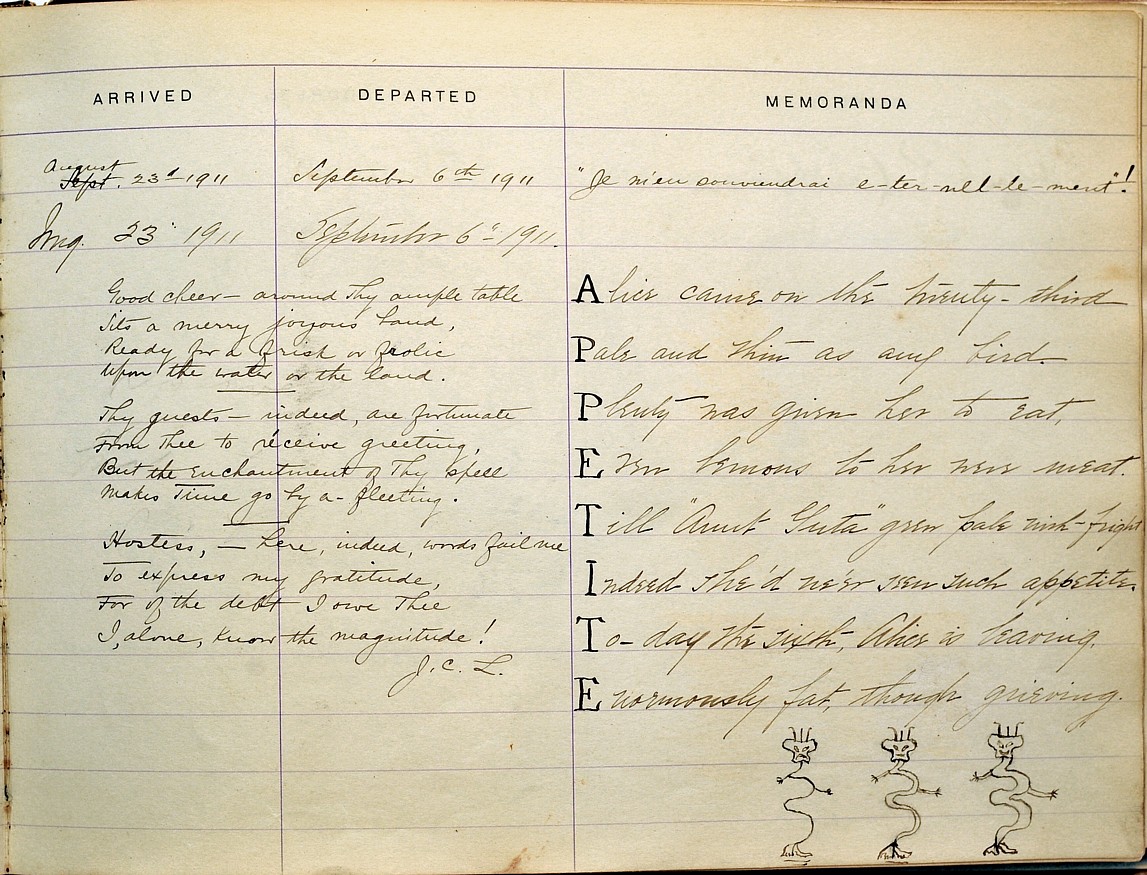 ARRIVED DEPARTED MEMORANDA
August
Sept. 23d 1911 September 6th 1911 "Je m'en souviendrai e-ter-nel-le-ment"!
Aug. 23 1911 September 6" 1911.
Good cheer — around Thy ample table
Sits a merry joyous band,
Ready for a frisk or frolic
Upon the water or the land.
Thy guests — indeed, are fortunate
From Thee to receive greeting,
But the enchantment of Thy spell
Makes Time go by a-fleeting.
Hostess, — here, indeed, words fail me
To express my gratitude,
For of the debt I owe Thee
I, alone, know the magnitude!
J. C. L.
Alice came on the twenty-third
Pale and thin as any bird.
Plenty was given her to eat,
Even lemons to her were meat.
Till "Aunt Guta" grew pale with fright
Indeed she'd ne'er seen such appetite.
To-day the sixth, Alice is leaving,
Enormously fat, though grieving.